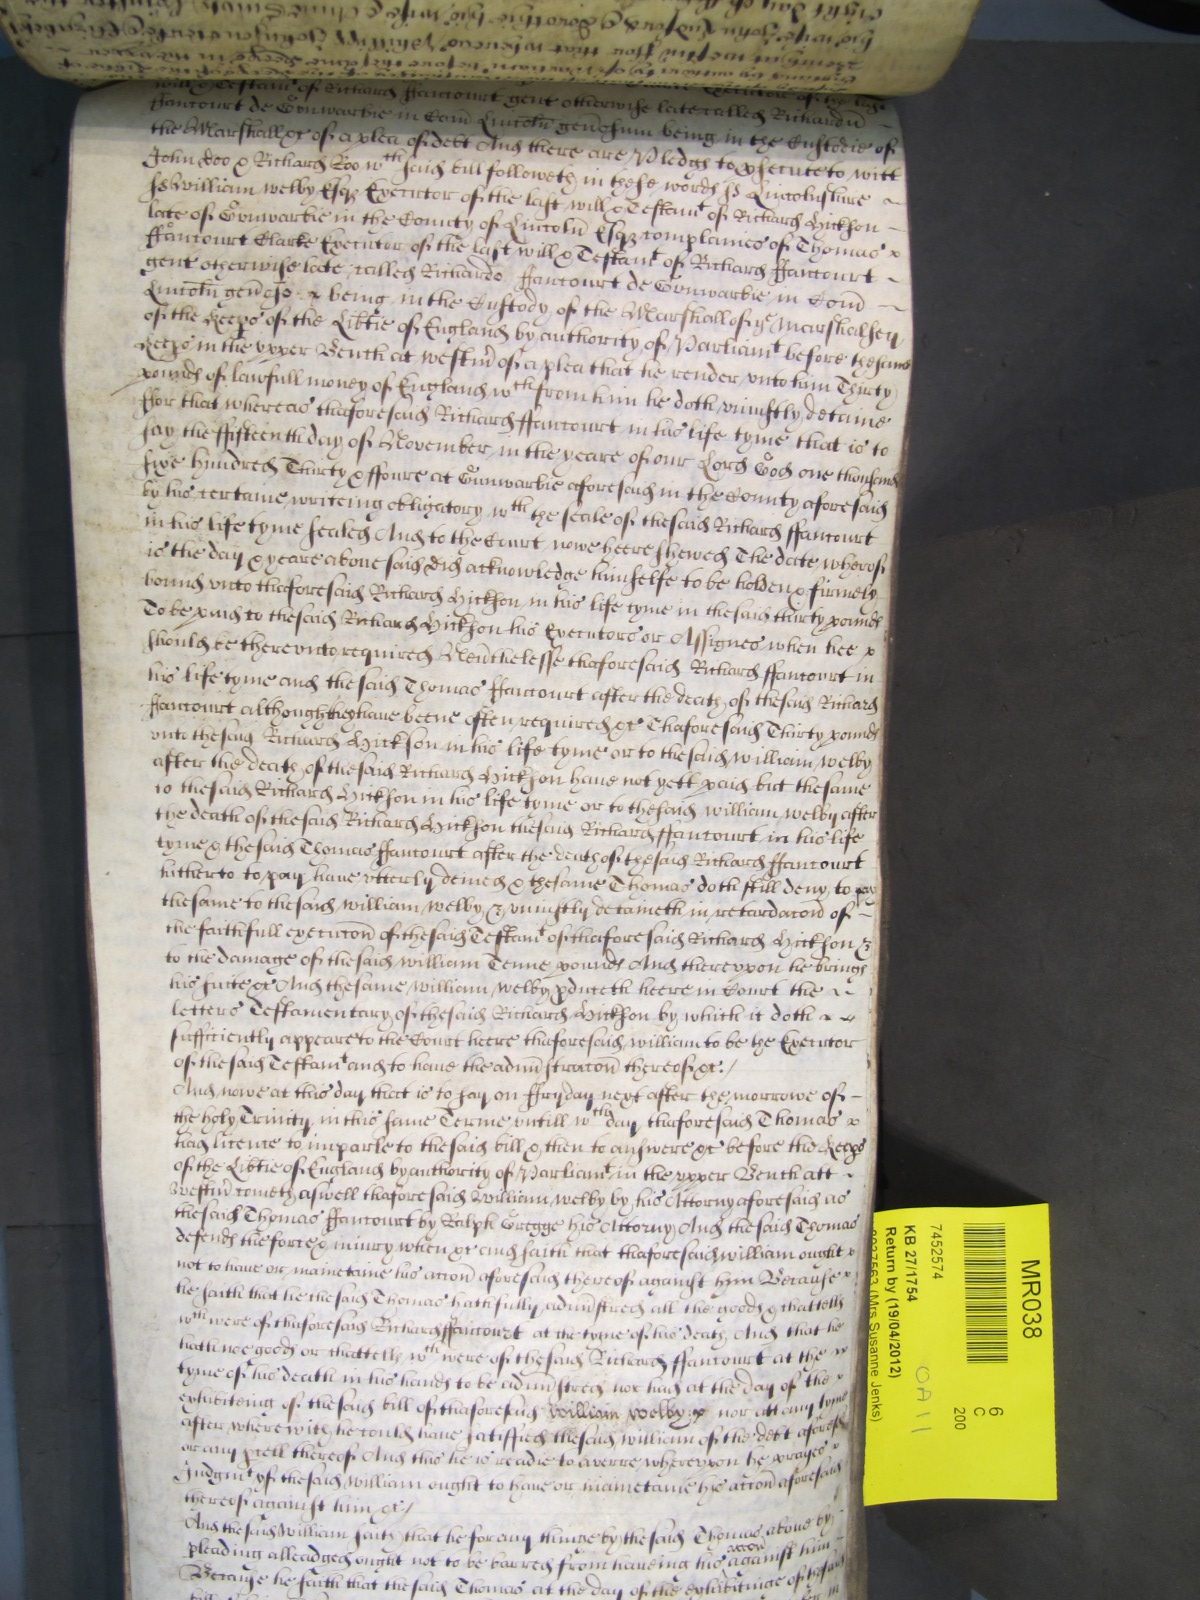 will & Testamt of Richard ffancourt gent otherwise late called Richardu
ffancourt de Gunwarbie in Com Lincoln genosum being in the Custodie of
the Marshall &c of a plea of debt And there are Pledgs to psecute to witt
John Doo & Richard Roo wth said bill followeth in these words ss Lincolnshire
ss William Welby Esqr Executor of the last will & Testamt of Richard Hickson
late of Gunwarbie in the County of Lincoln Esqr complaines of Thomas
ffancourt Clarke Executor of the last will & Testamt of Richard ffancourt
gent otherwise late called Richardo ffancourt de Gunwarbie in Com
Lincoln genoso & being in the Custody of the Marshall of ye Marshalsey
of the Keeps of the Libtie of England by authority of Parliamt before the same
Keeps in the vpper Bench at Westmr of a plea that he render vnto him Thirty
pounds of lawfull money of England wth from him he doth viniustly detaine
ffor that whereas thaforesaid Richard ffancourt in his life tyme that is to
say the ffifteenth day of November in the yeare of our Lord God one thousand
sixe hundred Thirty & ffoure at Gunwarbie aforesaid in the County aforesaid
by his certaine writeing obligatory wth the seale of the said Richard ffancourt
in his life tyme sealed And to the Court nowe heere shewed The date whereof
is the day & yeare aboue said did acknowledge himselfe to be holden & firmely
bound vnto thaforesaid Richard Hickson in his life tyme in the said thirty pounds
To be paid to the said Richard Hickson his Executors or Assignes when hee
should be therevnto required Neuthelesse thaforesaid Richard ffancourt in
his life tyme and the said Thomas ffancourt after the death of the said Richard
ffancourt although they haue beene often required &c Thaforesaid Thirty pounds
vnto the said Richard Hickson in his life tyme or to the said William Welby
after the death of the said Richard Hickson haue not yett paid but the same
to the said Richard Hickson in his life tyme or to the said William Welby after
the death of the said Richard Hickson the said Richard ffancourt in his life
tyme & the said Thomas ffancourt after the death of the said Richard ffancourt
hitherto to pay haue vtterly denied & the same Thomas doth still deny to pay
the same to the said William Welby & viniustly detaineth in retardacon of
the faithfull execucon of the said Testamt of thaforesaid Richard Hickson &
to the damage of the said William Tenne pounds And therevpon he brings
his suite &c And the same William Welby pduceth heere in Court the
letters Testamentary of the said Richard Hickson by which it doth
sufficiently appeare to the Court heere thaforesaid William to be the Executor
of the said Testamt and to haue the administracon thereof &c./
And nowe at this day that is to say on ffryday next after the morrowe of
the holy Trinity in this same Terme untill wth day thaforesaid Thomas
had licence to imparle to the said bill & then to answere &c before the Keeps
of the Libtie of England by authority of Parliamt in the vpper Bench att
Westmr cometh aswell thaforesaid William Welby by his Attorny aforesaid as
the said Thomas ffancourt by Ralph Gregge his Attorny And the said Thomas
defends the force & iniury when &c and saith that thaforesaid William ought
not to haue or maineteine his accon aforesaid thereof against him Because
he saith that he the said Thomas hath fully administred all the goods & chattells
wch were of thaforesaid Richard ffancourt at the tyme of his death And that he
hath noe goods or chattells wch were of the said Richard ffancourt at the
tyme of his death in his hands to be administred nor had at the day of the
exhibiteing of the said bill of thaforesaid William Welby nor att any tyme
after wherewith he could haue satisfied the said William of the debt aforesd
or any pcell thereof And this he is readie to averre wherevpon he prayes
Judgmt yf the said William ought to haue or maineteine his accon aforesaid
thereof against him &c./
And the said William saith that he for any thinge by the said Thomas aboue by
pleading alleadged ought not to be barred from haueing his accon against him
Because he saith that the said Thomas at the day of the exhibitinge of the said
MR038
6
C
200
7452574
KB 27/1754
Return by (19/04/2012)
(Mrs Susanne Jenks)
OA 11